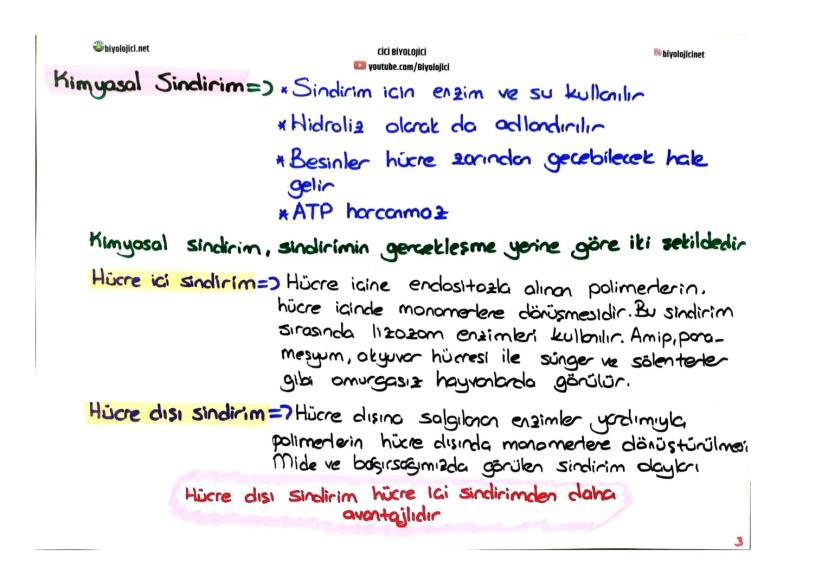 biyolojici.net
CİCİ BİYOLOJİCİ
youtube.com/Biyolojici
biyolojicinet
Kimyasal Sindirim=> * Sindirim icin enzim ve su kullanılır
* Hidroliz olarak da adlandırılır
* Besinler hücre zarından gecebilecek hale
gelir
* ATP harcanmaz
Kimyasal sindirim, sindirimin gercekleşme yerine göre iki şekildedir
Hücre içi sindirim=> Hücre icine endositozla alınan polimerlerin,
hücre içinde monomerlere dönüşmesidir. Bu sindirim
sırasında lizozom enzimleri kullanılır. Amip, para-
mesyum, akyuvar hücresi ile sünger ve sölenterler
gibi omurgasız hayvanlarda görülür.
Hücre dışı sindirim=> Hücre dışına salgılanan enzimler yardımıyla
polimerlerin hücre dışında monomerlere dönüştürülmesi
Mide ve bağırsağımızda görülen sindirim olayları
Hücre dışı sindirim hücre ici sindirimden daha
avantajlıdır
3